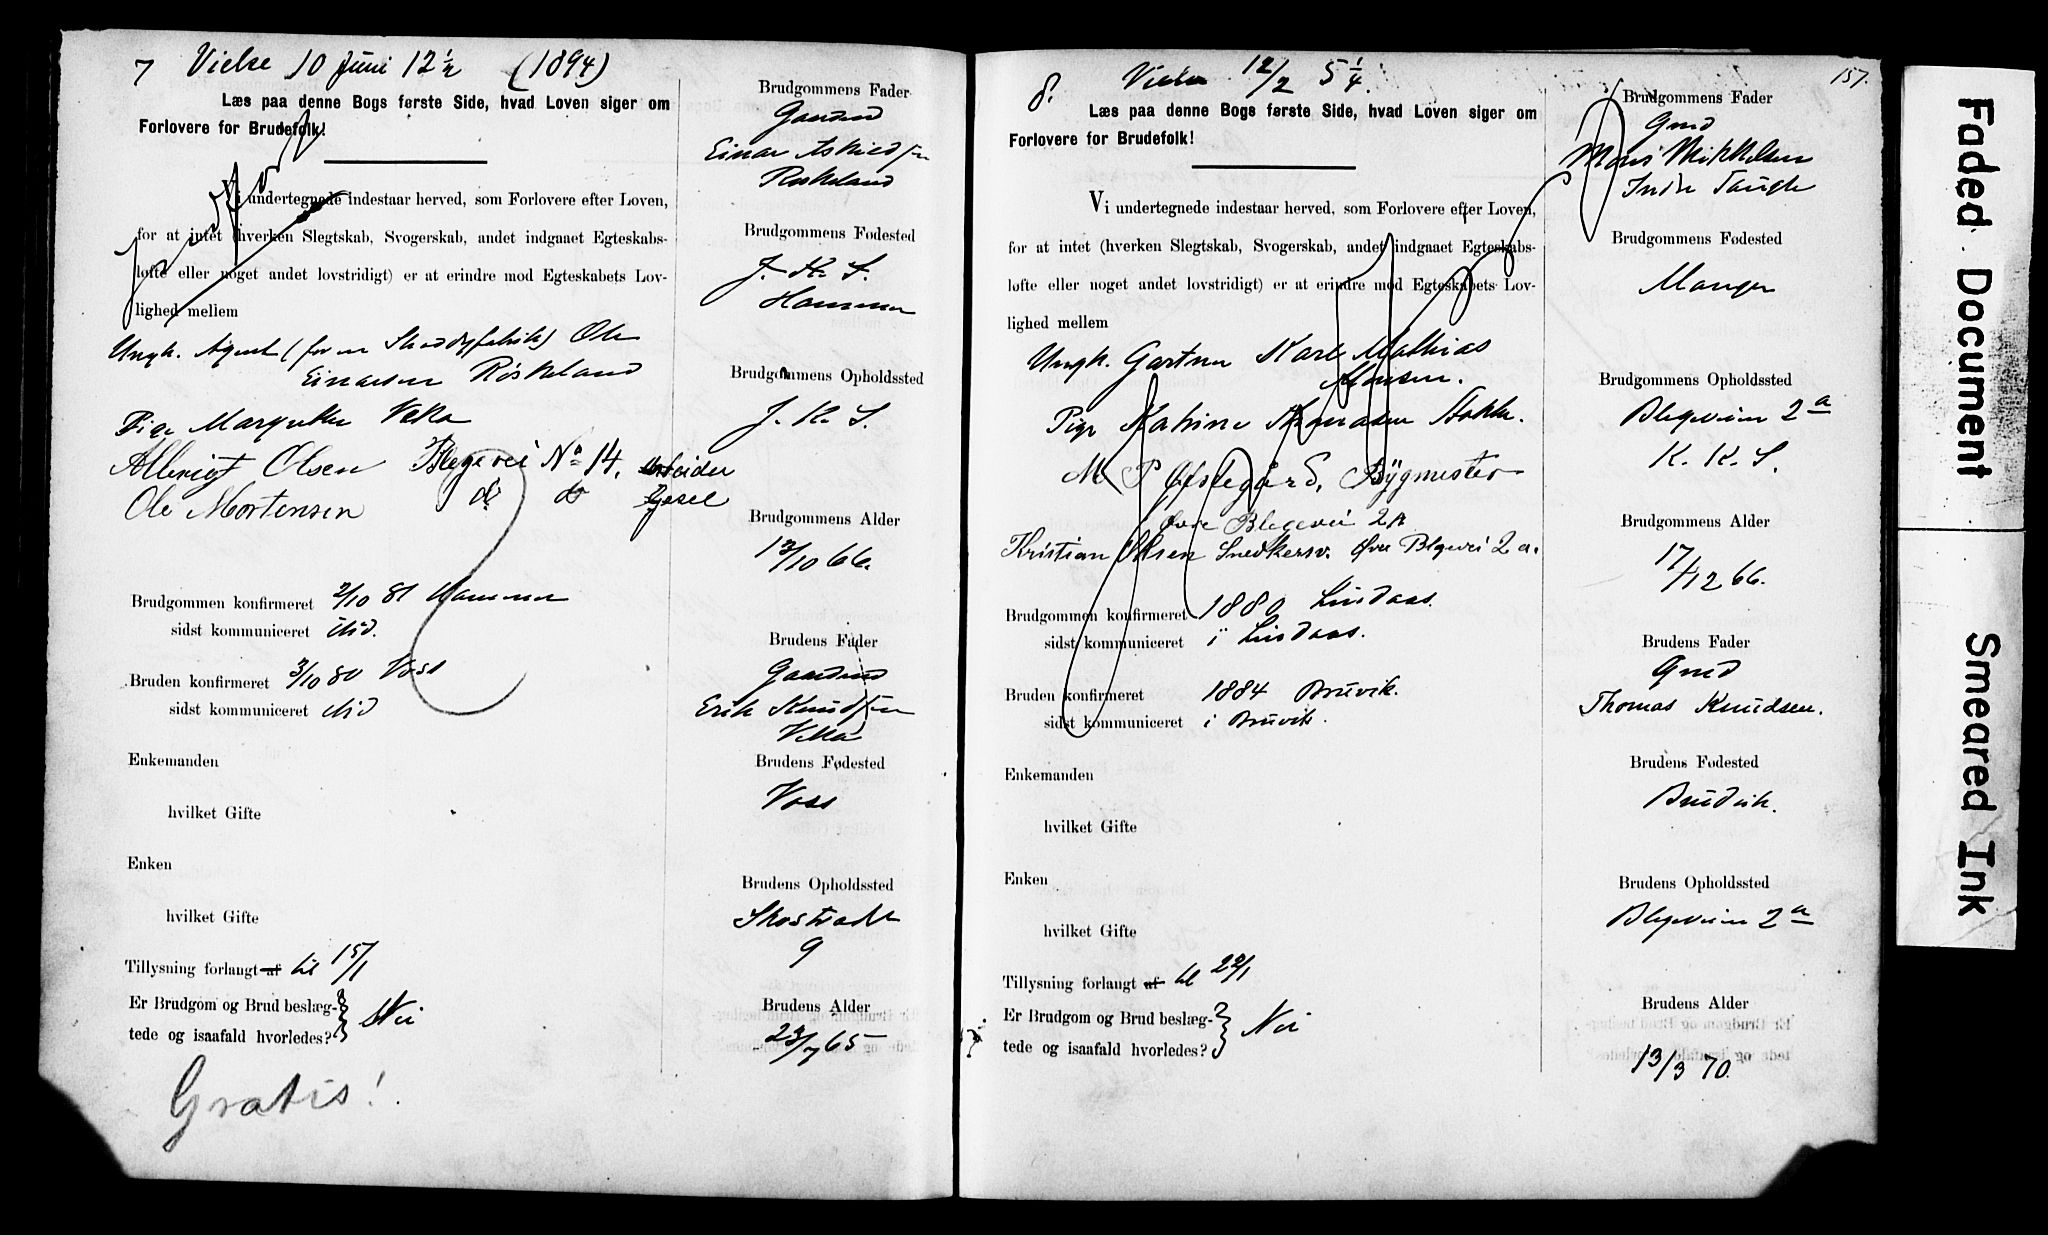 7 Vielse 10 Juni 12 ½ (1894)
Læs paa denne Bogs første Side, hvad Loven siger om
Forlovere for Brudefolk!
Vi undertegnede indestaar herved, som Forlovere efter Loven,
for at intet (hverken Slegtskab, Svogerskab, andet indgaaet Egteskabs-
løfte eller noget andet lovstridigt) er at erindre mod Egteskabets Lov-
lighed mellem
Ungk. Agent (for en Shoddyfabrik) Ole
Einarsen Röskeland
Pige Margrethe Veka
Alberigt Olsen Blegevei No 14. Arbeider
Ole Mortensen do do Gjesel
Brudgommen konfirmeret 2/10 81 Hammer
sidst kommuniceret ibid.
Bruden konfirmeret 3/10 80 Voss
sidst kommuniceret ibid
Enkemanden
hvilket Gifte
Enken
hvilket Gifte
Tillysning forlangt af til 15/1
Er Brudgom og Brud beslæg-
tede og isaafald hvorledes? Nei
Gratis!
Brudgommens Fader
Gaardmd
Einar Askildsen
Röskeland
Brudgommens Fødested
Hammer
Brudgommens Opholdssted
J. K. S.
Brudgommens Alder
13/10 66.
Brudens Fader
Gaardmd
Erik Knudsen
Veka
Brudens Fødested
Voss
Brudens Opholdssted
Skostræde
9
Brudens Alder
23/7 65
157.
8. Vielse 12/2 5 ¼.
Læs paa denne Bogs første Side, hvad Loven siger om
Forlovere for Brudefolk!
Vi undertegnede indestaar herved, som Forlovere efter Loven,
for at intet (hverken Slegtskab, Svogerskab, andet indgaaet Egteskabs-
løfte eller noget andet lovstridigt) er at erindre mod Egteskabets Lov-
lighed mellem
Ungk. Gartner Karl Mathias
Monsen.
Pige Katrine Thomasen Stokke.
M P Øfstegård, Bÿgmester
Øvre Blegevei 2A
Kristian Olsen Snedkersv. Øvre Blegevei 2 a.
Brudgommen konfirmeret 1880 Lindaas.
sidst kommuniceret i Lindaas.
Bruden konfirmeret 1884 Bruvik.
sidst kommuniceret i Bruvik.
Enkemanden
hvilket Gifte
Enken
hvilket Gifte
Tillysning forlangt af til 22/1
Er Brudgom og Brud beslæg-
tede og isaafald hvorledes? Nei
Brudgommens Fader
Gmd
Mons Mikkelsen
Brudgommens Fødested
Manger
Brudgommens Opholdssted
Blegeveien 2 a
K. K. S.
Brudgommens Alder
17/12 66.
Brudens Fader
Gmd
Thomas Knudsen.
Brudens Fødested
Bruvik.
Brudens Opholdssted
Blegeveien 2 a
Brudens Alder
13/3 70.
Faded Document
Smeared Ink